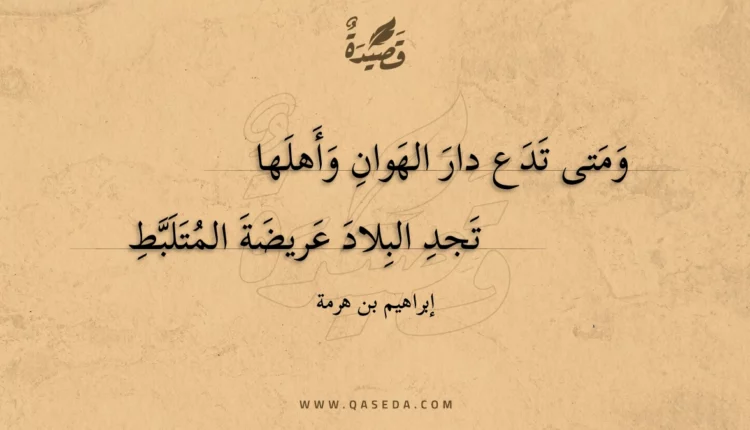 قَصِيْدَةٌ
وَمَتى تَدَع دارَ الهَوانِ وَأَهلَها
تَجدِ البِلادَ عَريضَةَ المُتَلَبَّطِ
إبراهيم بن هرمة
WWW.QASEDA.COM